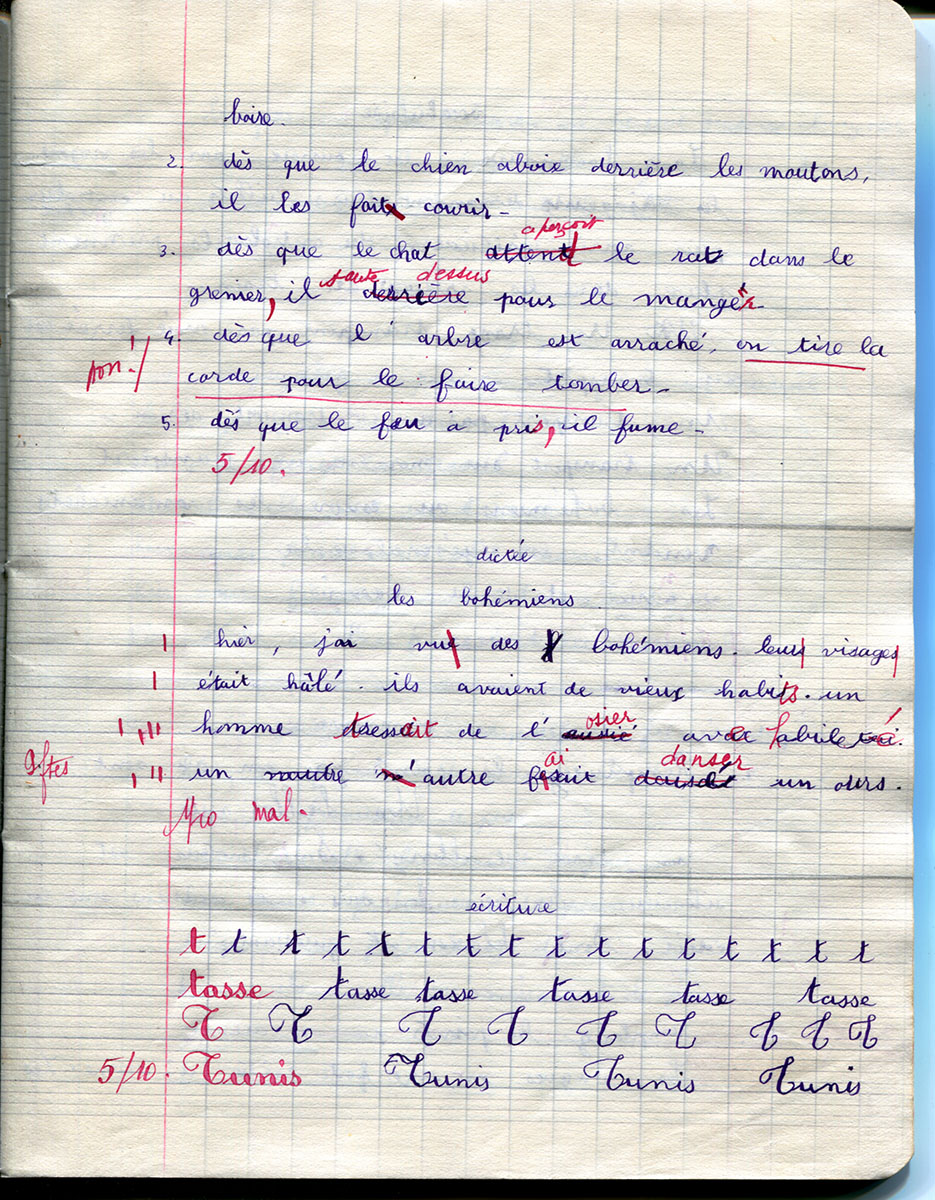 boire.
2. dès que le chien aboix derrière les moutons,
il les fait courir -
aperçoit
3. dès que le chat attent le rat dans le
saute dessus
grenier, il derrière pour le manger
4. dès que l'arbre est arraché, on tire la
non!
corde pour le faire tomber -
5. dès que le feu a pris, il fume -
5/10.
dictée
les bohémiens
hier, j'ai vu des bohémiens. leurs visages
était hâlé. ils avaient de vieux habits. un
osier
homme tressait de l' avec habileté.
9 ftes
ai danser
un autre fesait un ours.
1/10 mal.
écriture
t t t t t t t t t t t t t t t t
tasse tasse tasse tasse tasse tasse
T T T T T T T T T
5/10. Tunis Tunis Tunis Tunis